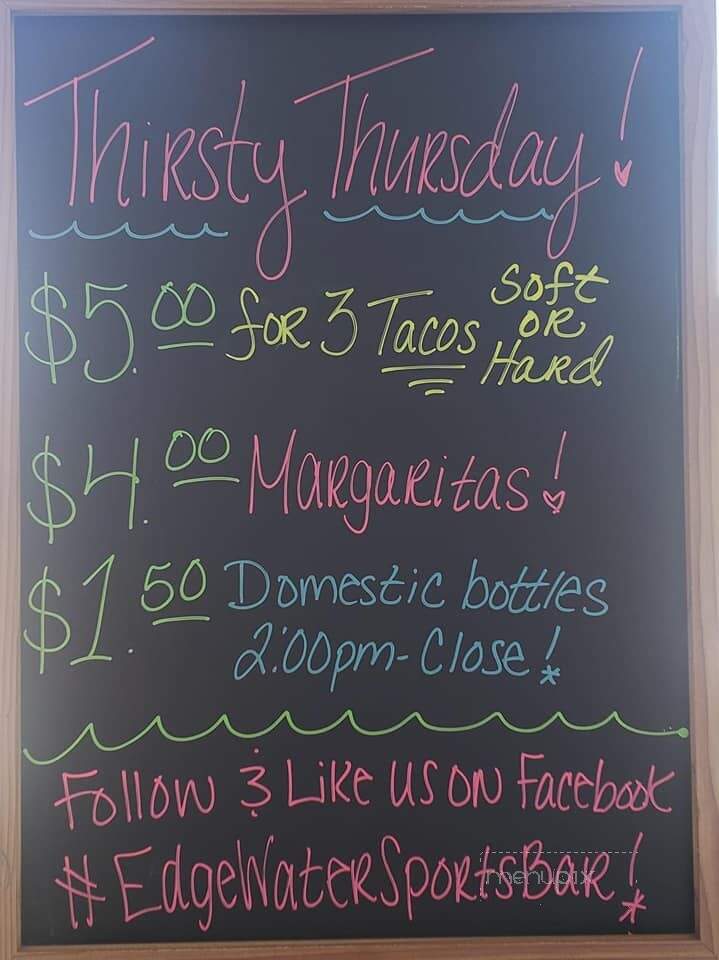 Thirsty Thursday!
$5.00 for 3 Tacos Soft OR Hard
$4.00 Margaritas!
$1.50 Domestic bottles
2:00pm-Close!
Follow & Like us on Facebook
#EdgeWaterSportsBar!
menupix